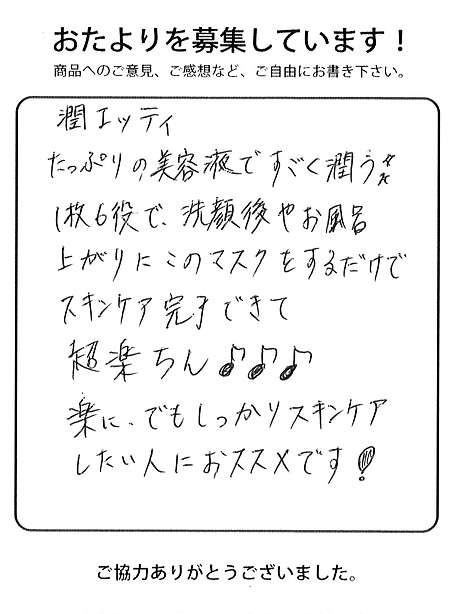 おたよりを募集しています！
商品へのご意見、ご感想など、ご自由にお書き下さい。
潤エッティ
たっぷりの美容液ですごく潤う
1枚6役で、洗顔後やお風呂
上がりにこのマスクをするだけで
スキンケア完了できて
超楽ちん♪♪♪
楽に、でもしっかりスキンケア
したい人におススメです！
ご協力ありがとうございました。